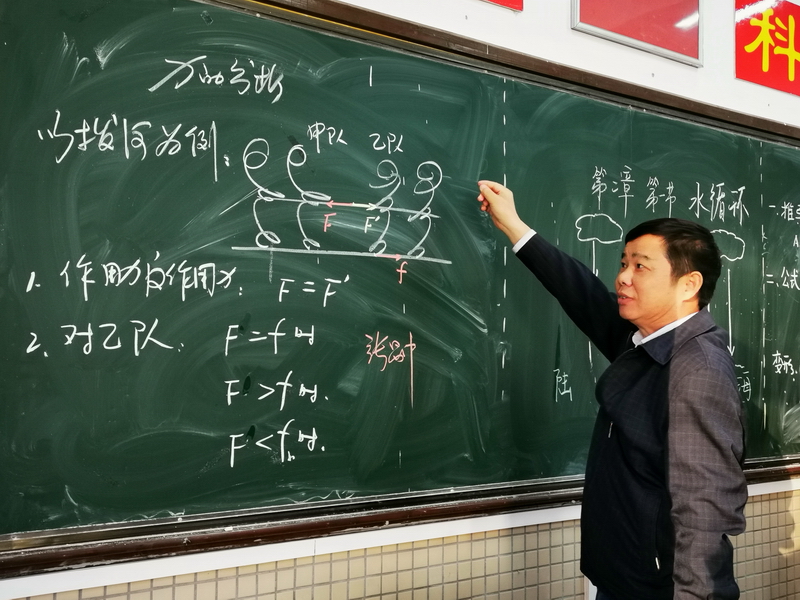 科
力的分析
以拔河为例:
甲队 乙队
F F'
f
1. 作用力反作用力: F=F'
2. 对乙队: F=f时
F>f时.
F<f时.
第二章 第一节 水循环
陆
海
一.推
二.公式
变形: